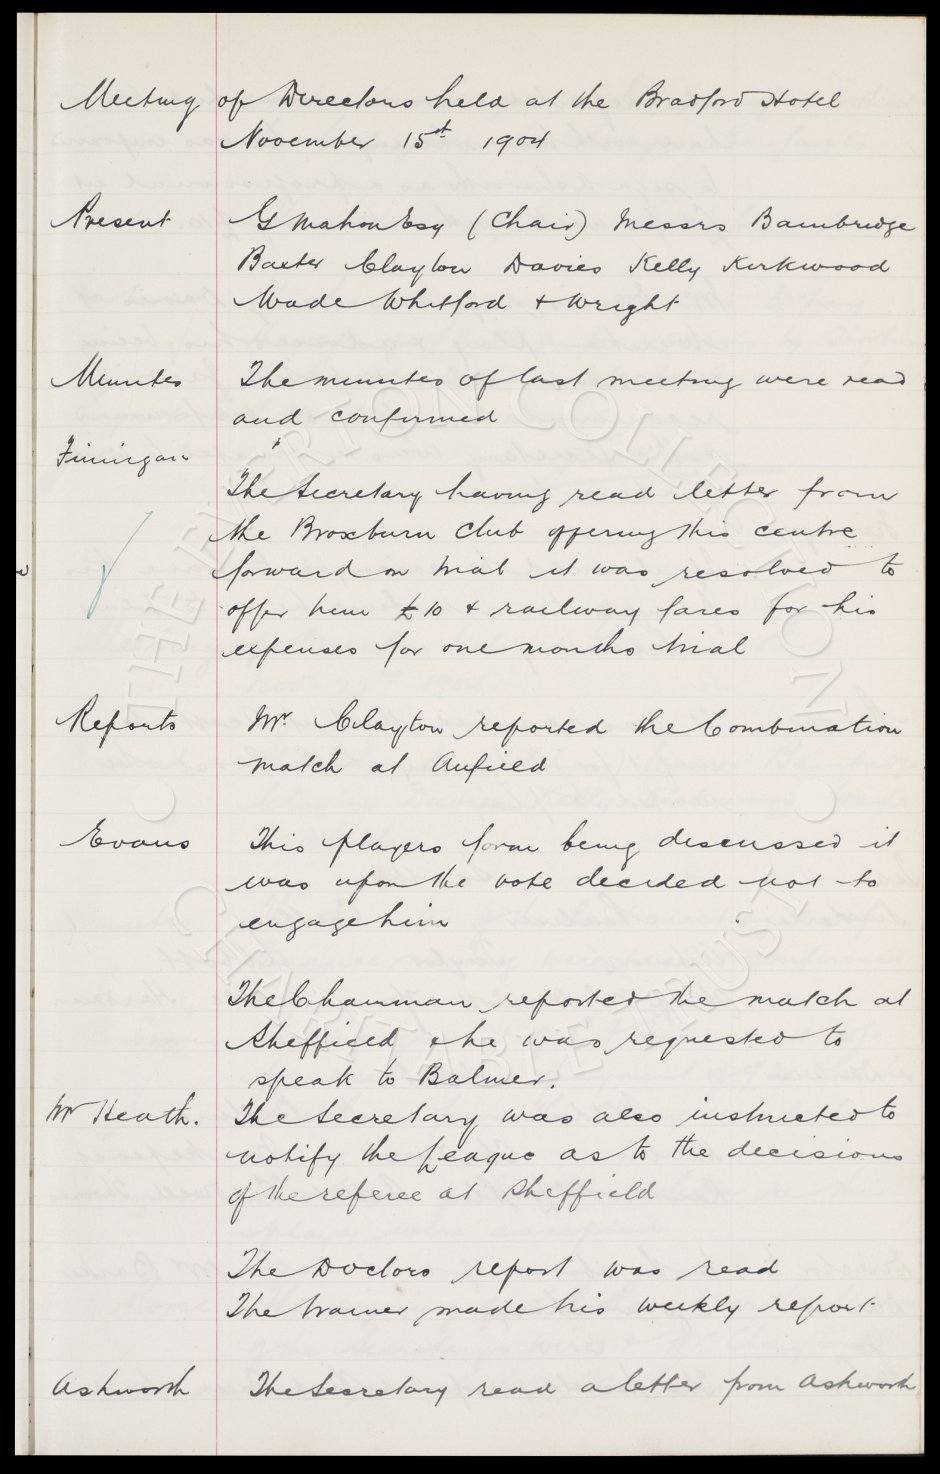 Meeting of Directors held at the Bradford Hotel
November 15st 1904
Present G Mahon Esq (Chair) Messrs Bainbridge
Baxter Clayton Davies Kelly Kirkwood
Wade Whitford & Wright
Minutes The minutes of last meeting were read
and confirmed
Finnigan
The Secretary having read letter from
the Broxburn Club offering this centre
forward on trial it was resolved to
offer him £10 & railway fares for his
expenses for one months trial
Reports Mr. Clayton reported the Combination
match at Anfield
Evans This players form being discussed it
was upon the vote decided not to
engage him
The Chairman reported the match at
Sheffield & he was requested to
speak to Balmer.
Mr Heath. The Secretary was also instructed to
notify the League as to the decisions
of the referee at Sheffield
The Doctors report was read
The trainer made his weekly report
Ashworth The Secretary read a letter from Ashworth
THE EVERTON COLLECTION
CHARITABLE TRUST